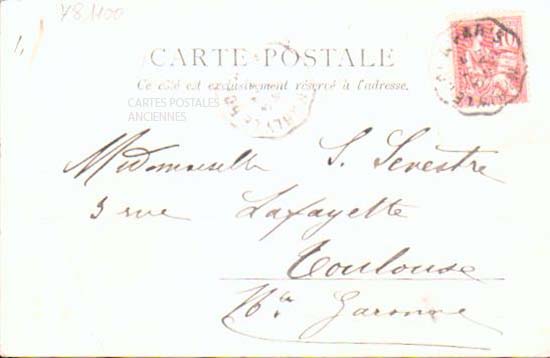 78 1100
CARTE POSTALE
Ce côté est exclusivement réservé à l'adresse.
CARTES POSTALES
ANCIENNES
Mademoiselle S. Sevestre
3 rue Lafayette
Toulouse
Hte Garonne